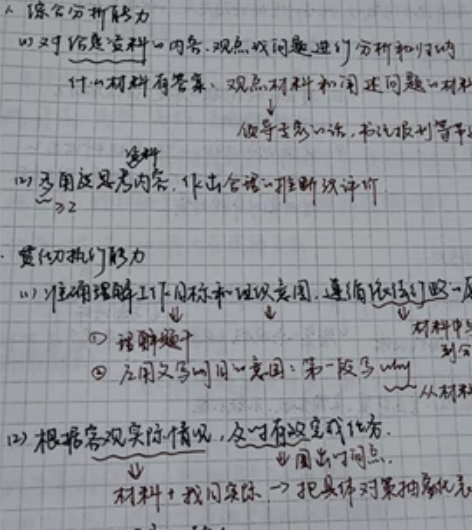 综合分析能力
(1) 对给定资料的内容、观点或问题进行分析和归纳
什么材料有答案、观点材料和阐述问题的材料
↓
领导专家的话,书法报刊等
资料
(2) 多角度思考内容,作出合理的推断或评价
≥2
贯彻执行能力
(1) 准确理解工作目标和组织意图,遵循依法行政的原
↓ ↓ ↓
① 读解题干 材料中
② 应用文写明目的意图:第一段写 why 从材料
(2) 根据客观实际情况,及时有效完成任务.
↓ ↓ 圈出时间点.
材料+我国实际 → 把具体对策抽象化